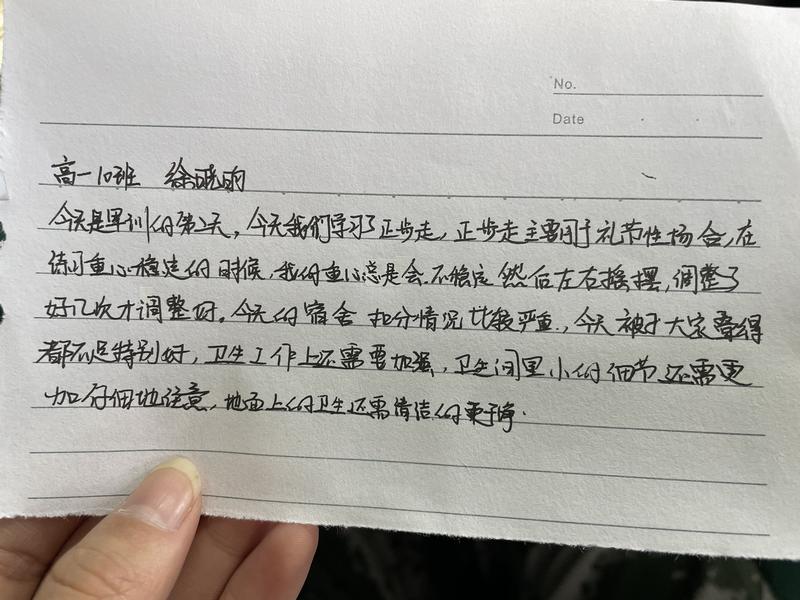 No.
Date
高一10班 徐晓雨
今天是军训的第2天，今天我们学习了正步走，正步走主要用于礼节性场合，在
练习重心稳定的时候，我的重心总是会不稳定然后左右摇摆，调整了
好几次才调整好。今天的宿舍扣分情况比较严重，今天被子大家叠得
都不是特别好，卫生工作上还需要加强，卫生间里小的细节还需更
加仔细地注意，地面上的卫生还需清洁的更干净.